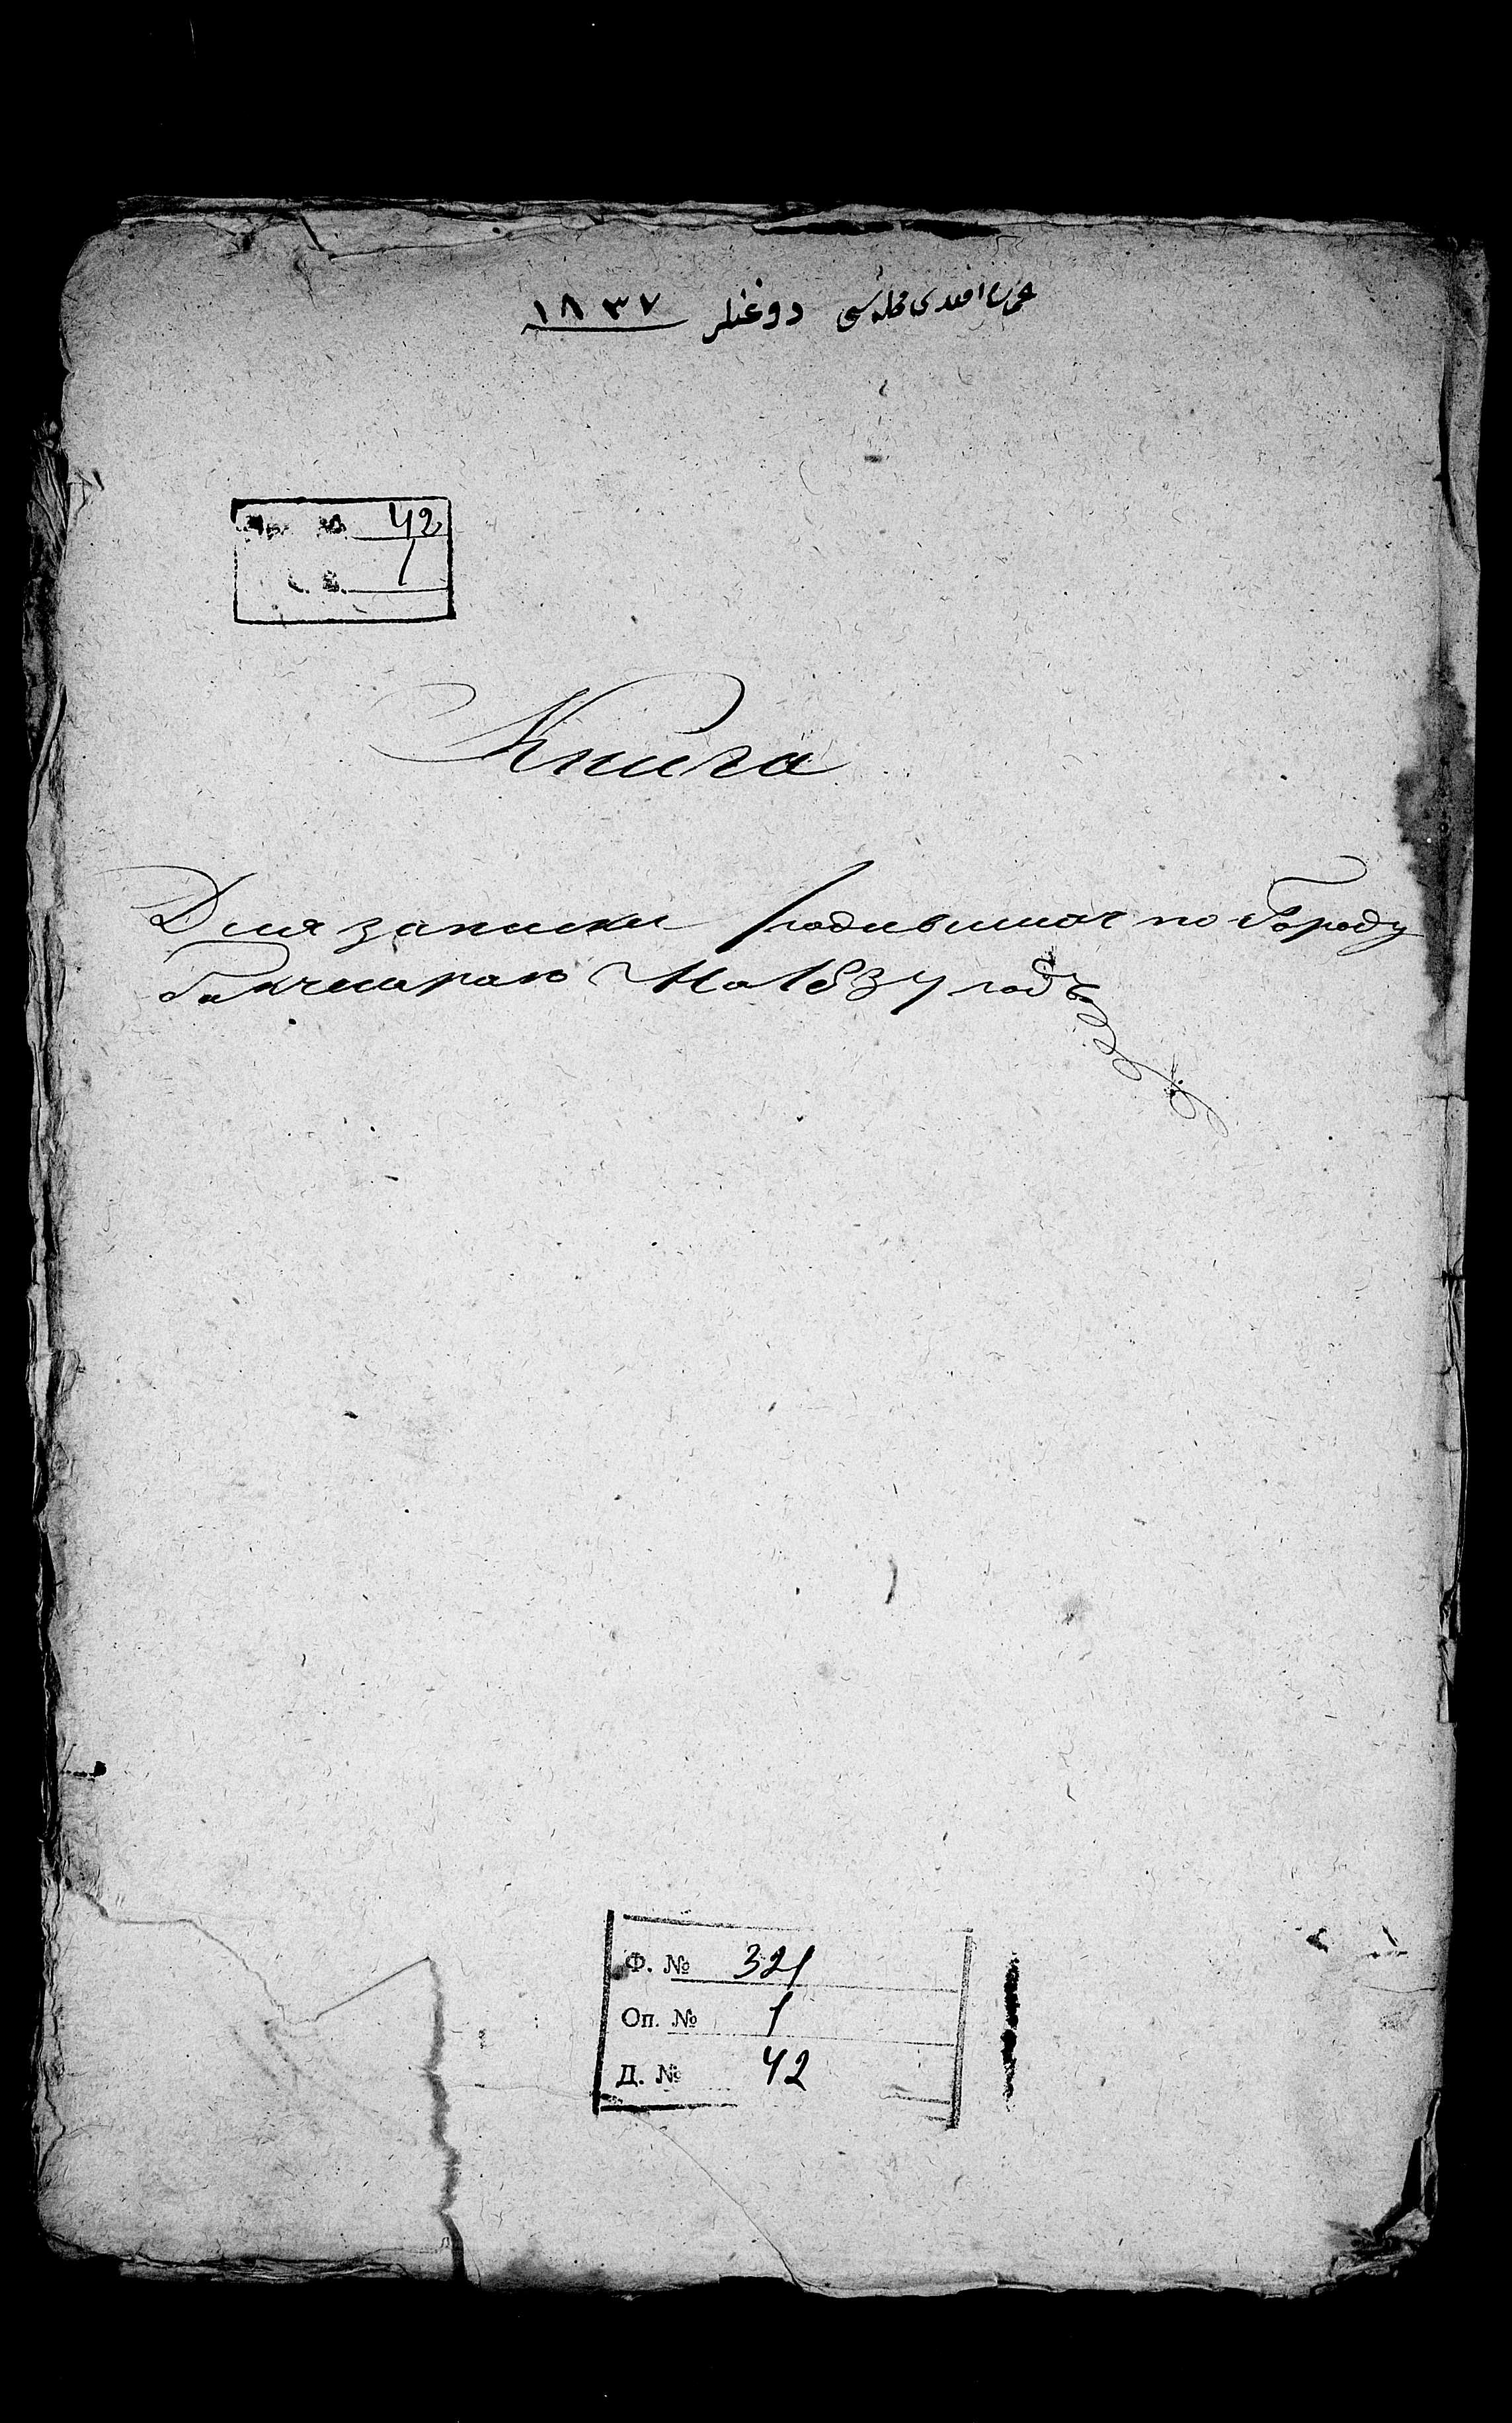 افندی محله سی دوغنلر ١٨٣٧
42
1
Книга
Для записки родившихся по Городу
бакчисараю На 1837 годъ
Ф. № 321
Оп. № 1
Д. № 42